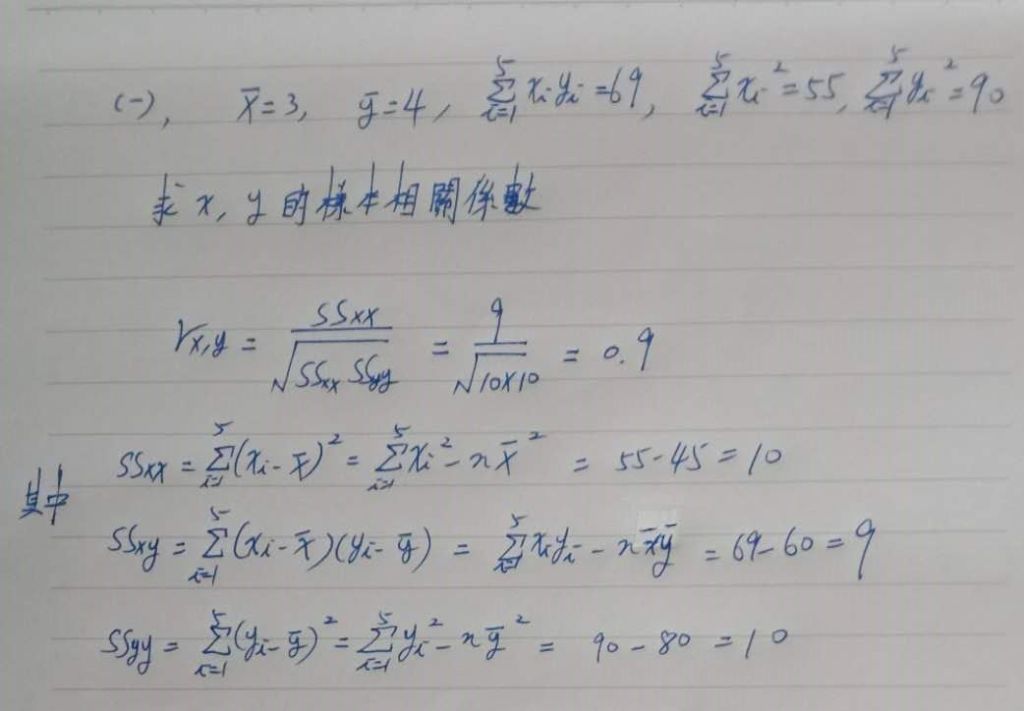 (一), x̄=3, ȳ=4, Σ_{i=1}^{5} x_i y_i =69, Σ_{i=1}^{5} x_i² =55, Σ_{i=1}^{5} y_i² =90
求 x, y 的樣本相關係數
r_{x,y} = SSxx / √(SSxx SSyy) = 9 / √(10×10) = 0.9
其中 SSxx = Σ_{i=1}^{5} (x_i - x̄)² = Σ_{i=1}^{5} x_i² - n x̄² = 55-45 = 10
SSxy = Σ_{i=1}^{5} (x_i - x̄)(y_i - ȳ) = Σ_{i=1}^{5} x_i y_i - n x̄ȳ = 69-60 = 9
SSyy = Σ_{i=1}^{5} (y_i - ȳ)² = Σ_{i=1}^{5} y_i² - n ȳ² = 90-80 = 10